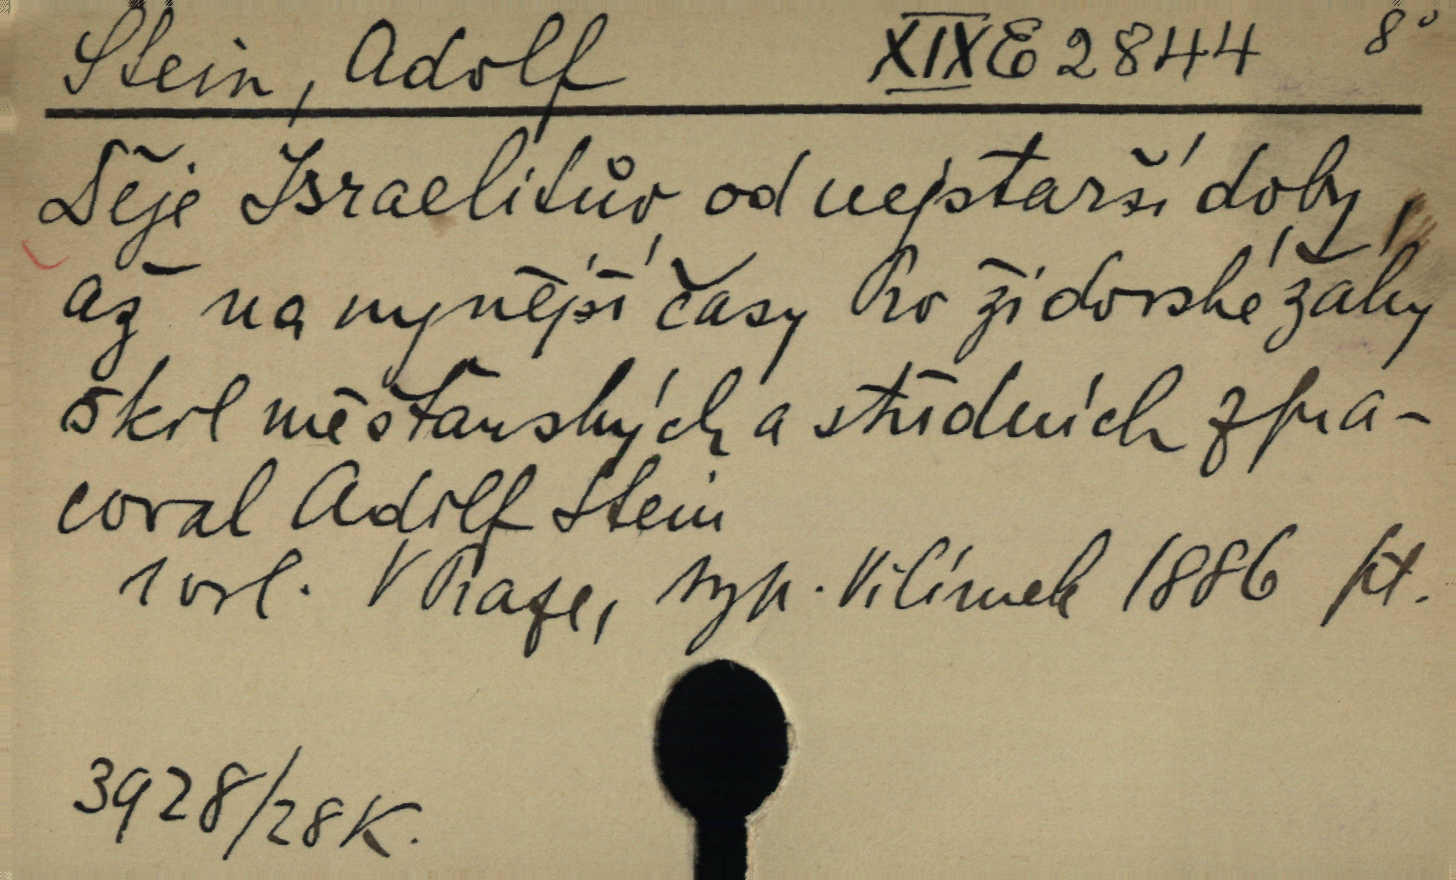 Stein, Adolf XIX E 2844 8°
Děje Israelitův od nejstarší doby,
až na nynější časy Pro židovské žáky
škol měšťanských a středních zpra-
coval Adolf Stein
1 vol. V Praze, typ. Vilímek 1886
3928/28 K.